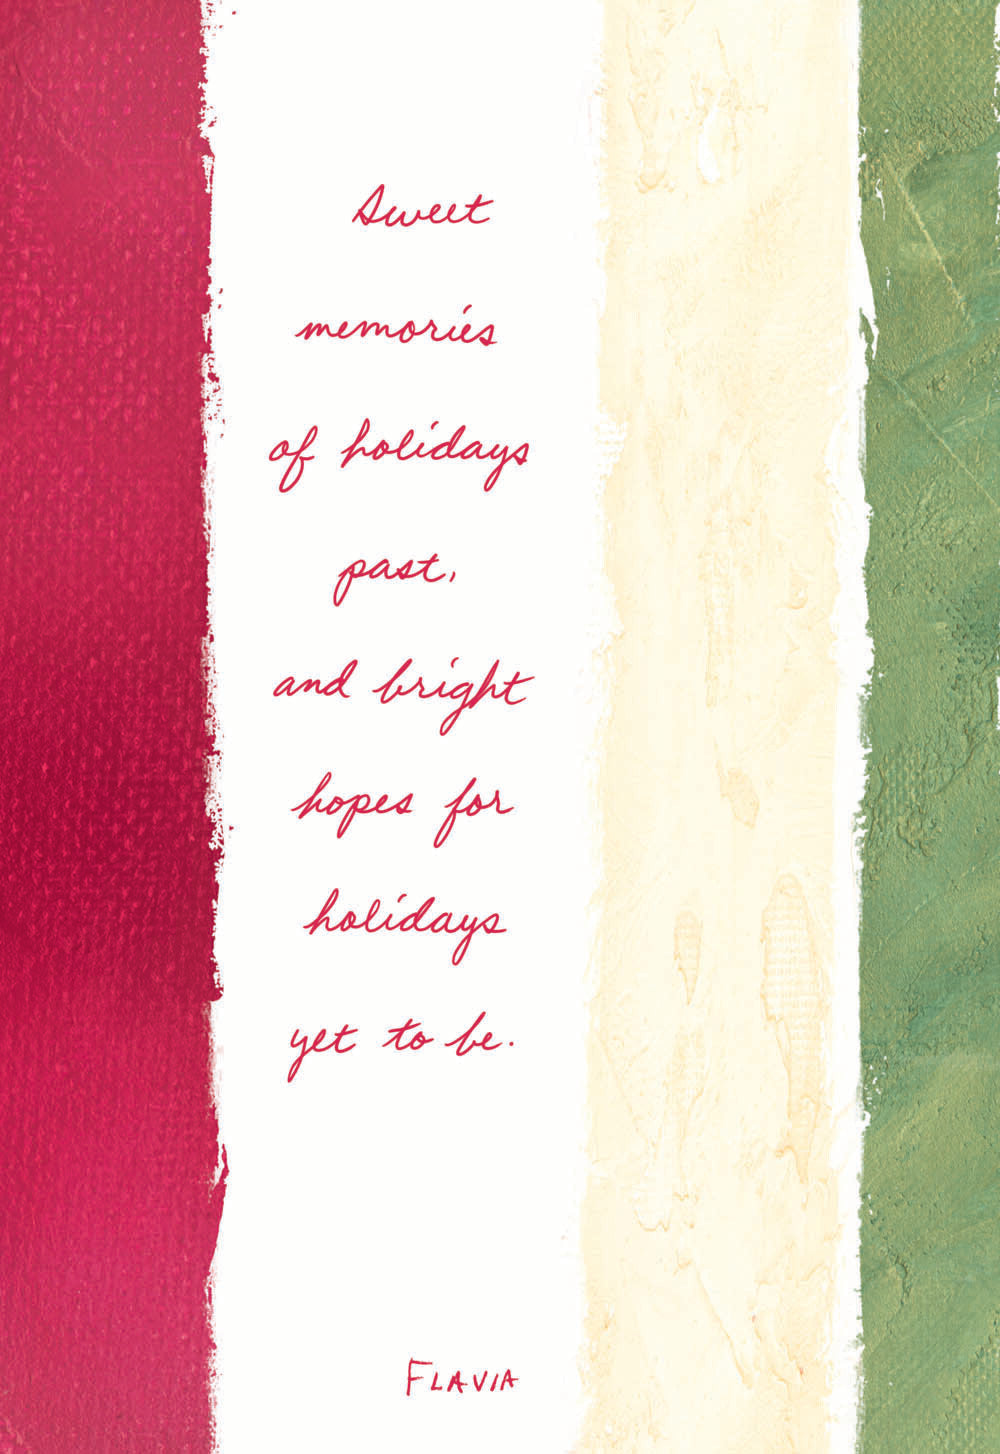 Sweet
memories
of holidays
past,
and bright
hopes for
holidays
yet to be.
FLAVIA